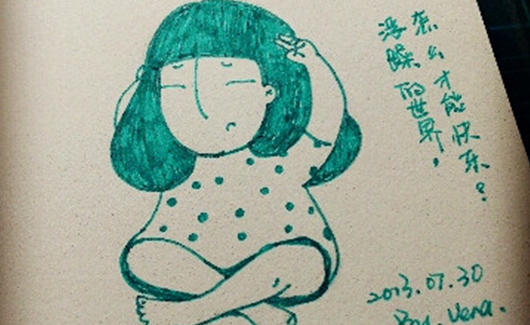 浮躁的世界，
怎么才能快乐？
2013.07.30
By. Vera.